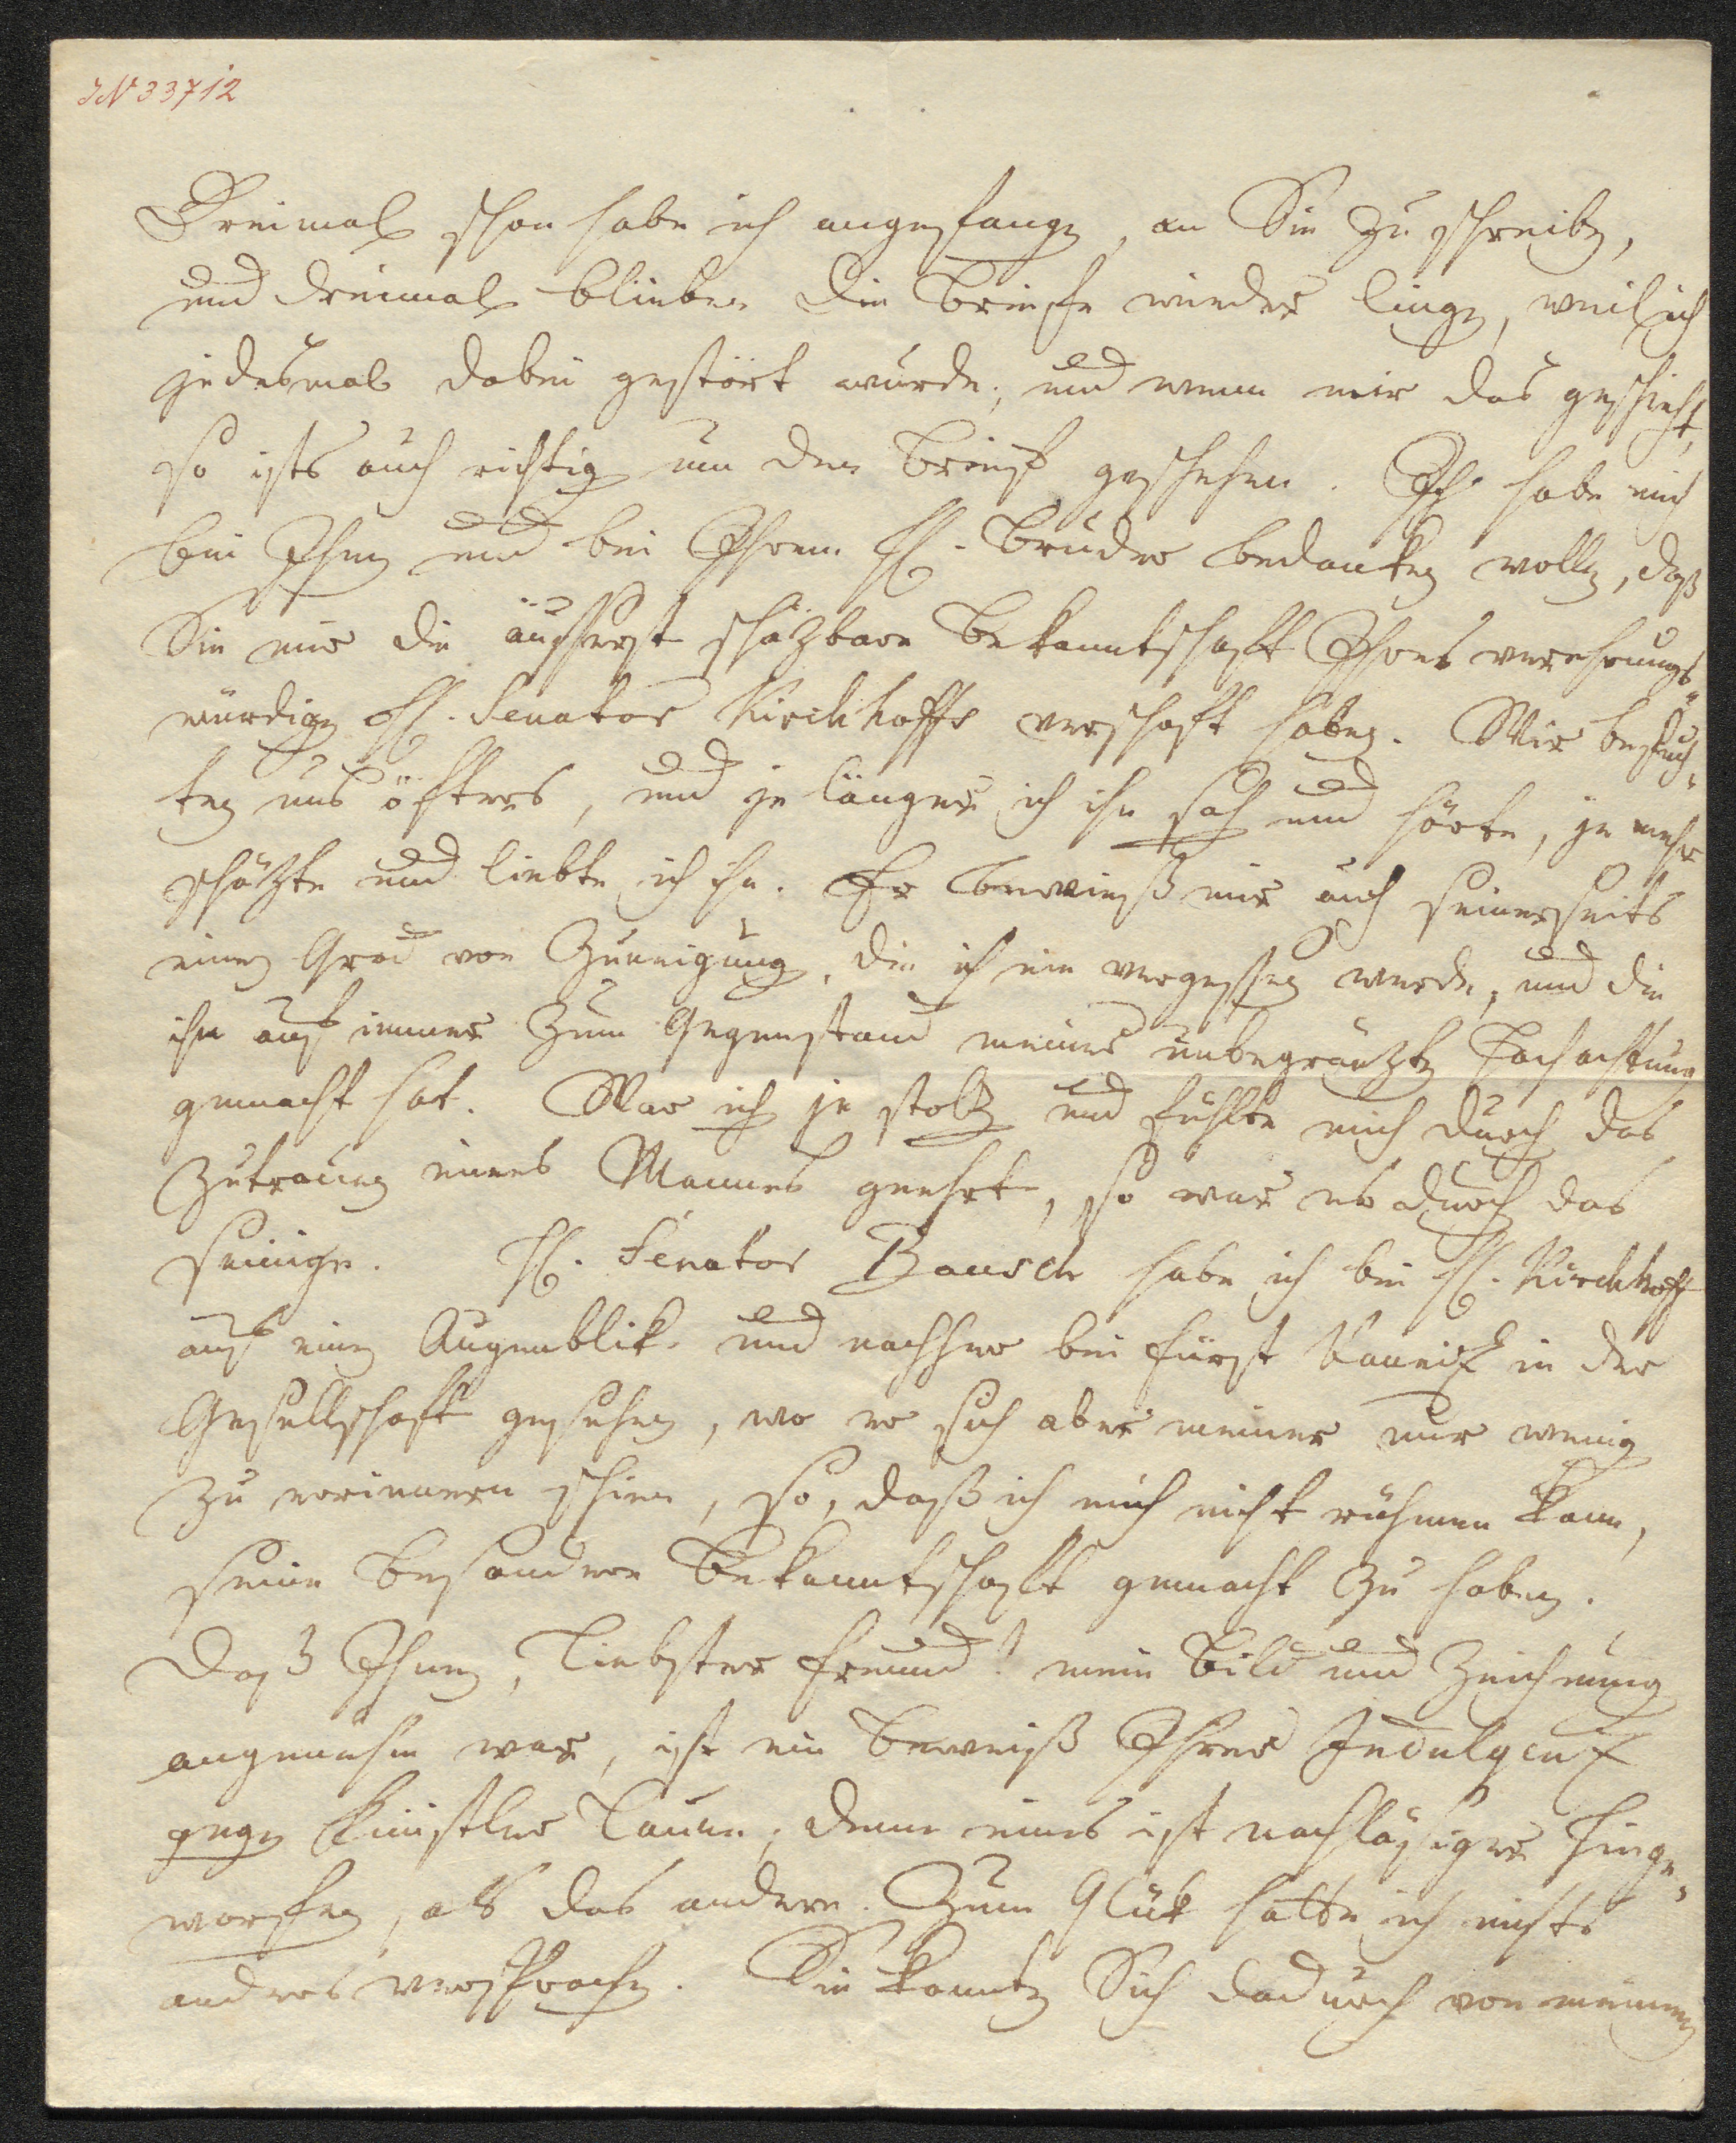 IN 33712
Dreimal schon habe ich angefangen, an Sie zu schreiben,
und dreimal blieben die Briefe wieder liegen, weil ich
jedesmal dabei gestört wurde; und wenn mir das geschieht,
so ists auch richtig um den Brief geschehen. Ich habe mich
bei Ihnen und bei Ihrem H. Bruder bedanken wollen, daß
Sie mir die äusserst schäzbare Bekanntschaft Ihres verehrungs-
würdigen H. Senator Kirchhoffs verschaft haben. Wir besuch-
ten uns öfters, und je länger ich ihn sah und hörte, je mehr
schäzte und liebte ich ihn. Er bewieß mir auch seinerseits
einen Grad von Zuneigung, die ich nie vergessen werde, und die
ihn auf immer zum Gegenstand meiner unbegränzten Hochachtung
gemacht hat. War ich je stolz und fühlte mich durch das
Zutrauen eines Mannes geehrt, so war es durch das
seinige. H. Senator Bausch habe ich bei H. Kirchhoff
auf einen Augenblik und nachher bei Fürst Kauniz in der
Gesellschaft gesehen, wo er sich aber meiner nur wenig
zu erinnern schien, so, daß ich mich nicht rühmen kann,
seine besondere Bekanntschaft gemacht zu haben.
Daß Ihnen, liebster Freund! mein Bild und Zeichnung
angenehm war, ist ein Beweiß Ihrer Indulgenz
gegen Künstler Laune; denn eines ist nachläßiger hinge-
worfen, als das andere. Zum Glük hatte ich nichts
anders versprochen. Sie konnten Sich dadurch von meinem